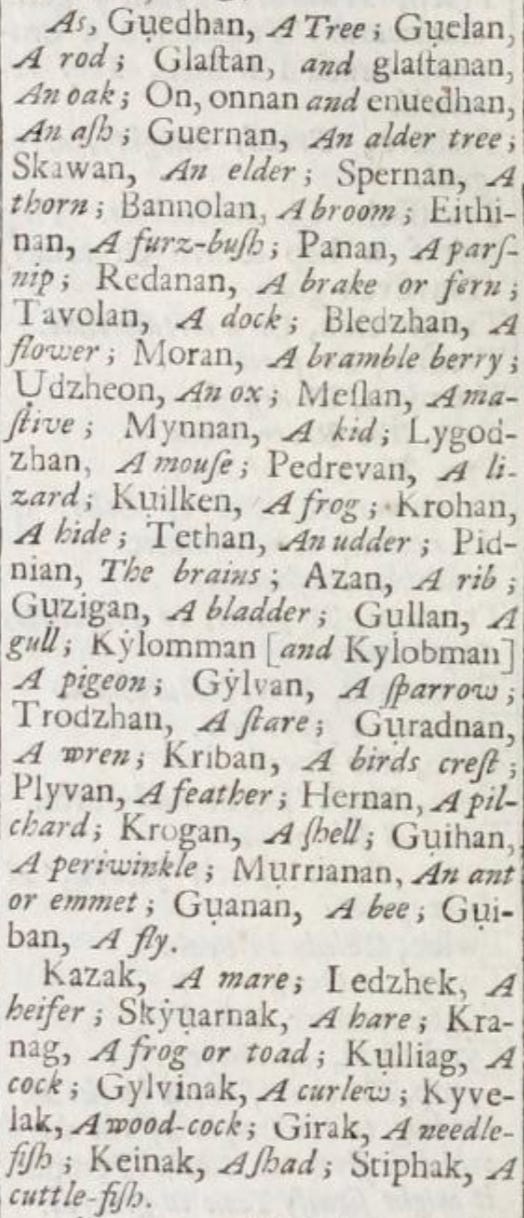 As, Gụedhan, A Tree; Gụelan,
A rod; Glaſtan, and glaſtanan,
An oak; On, onnan and enuedhan,
An aſh; Guernan, An alder tree;
Skawan, An elder; Spernan, A
thorn; Bannolan, A broom; Eithi-
nan, A furz-buſh; Panan, A parſ-
nip; Redanan, A brake or fern;
Tavolan, A dock; Bledzhan, A
flower; Moran, A bramble berry;
Udzheon, An ox; Meſlan, A ma-
ſtive; Mynnan, A kid; Lygod-
zhan, A mouſe; Pedrevan, A li-
zard; Kụilken, A frog; Krohan,
A hide; Tethan, An udder; Pid-
nian, The brains; Azan, A rib;
Gụzigan, A bladder; Gullan, A
gull; Kẏlomman [and Kylobman]
A pigeon; Gẏlvan, A ſparrow;
Trodzhan, A ſtare; Gụradnan,
A wren; Krıban, A birds creſt;
Plyvan, A feather; Hernan, A pil-
chard; Krogan, A ſhell; Gụihan,
A periwinkle; Mụrrıanan, An ant
or emmet; Gụanan, A bee; Gụi-
ban, A fly.
Kazak, A mare; Ledzhek, A
heifer; Skẏụarnak, A hare; Kra-
nag, A frog or toad; Kụlliag, A
cock; Gylvinak, A curlew; Kyve-
lak, A wood-cock; Girak, A needle-
fiſh; Keinak, A ſhad; Stiphak, A
cuttle-fiſh.